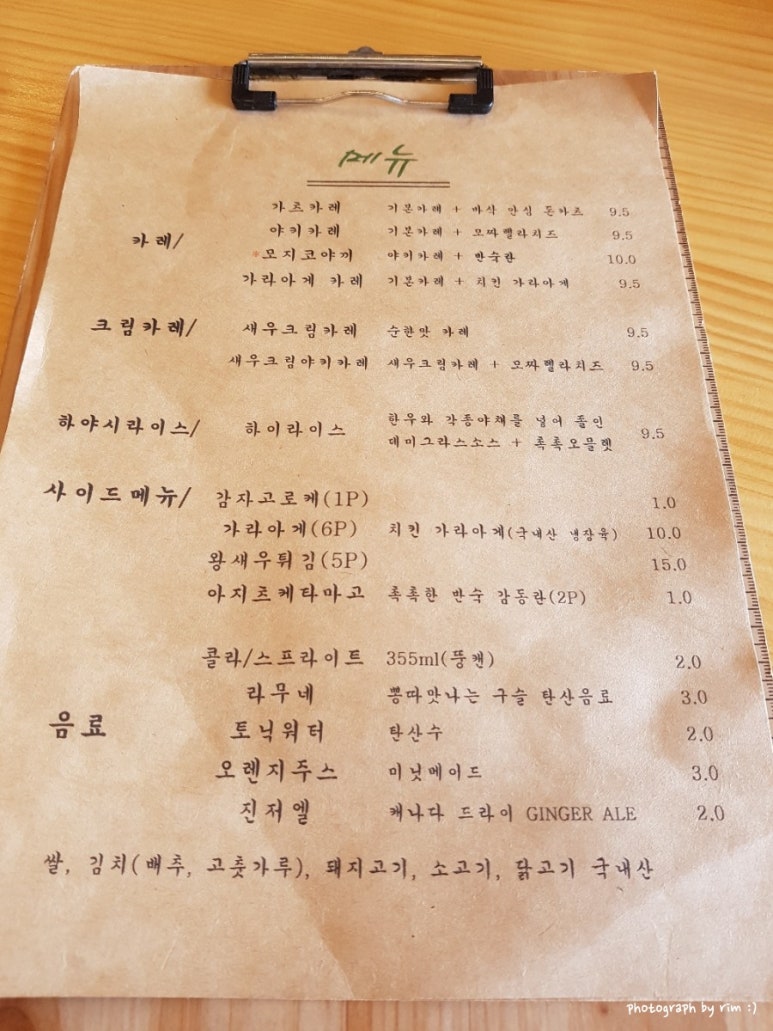 메뉴
카레/
가츠카레 기본카레 + 바삭 안심 돈카츠 9.5
야키카레 기본카레 + 모짜렐라치즈 9.5
*모지코야끼 야키카레 + 반숙란 10.0
가라아게 카레 기본카레 + 치킨 가라아게 9.5
크림카레/ 새우크림카레 순한맛 카레 9.5
새우크림야키카레 새우크림카레 + 모짜렐라치즈 9.5
하야시라이스/ 하이라이스 한우와 각종야채를 넣어 졸인
데미그라스소스 + 촉촉오믈렛 9.5
사이드메뉴/ 감자고로케(1P) 1.0
가라아게(6P) 치킨 가라아게(국내산 냉장육) 10.0
왕새우튀김(5P) 15.0
아지츠케타마고 촉촉한 반숙 감동란(2P) 1.0
콜라/스프라이트 355ml(뚱캔) 2.0
라무네 뽕따맛나는 구슬 탄산음료 3.0
음료 토닉워터 탄산수 2.0
오렌지주스 미닛메이드 3.0
진저엘 캐나다 드라이 GINGER ALE 2.0
쌀, 김치(배추, 고춧가루), 돼지고기, 소고기, 닭고기 국내산
photograph by rim :)